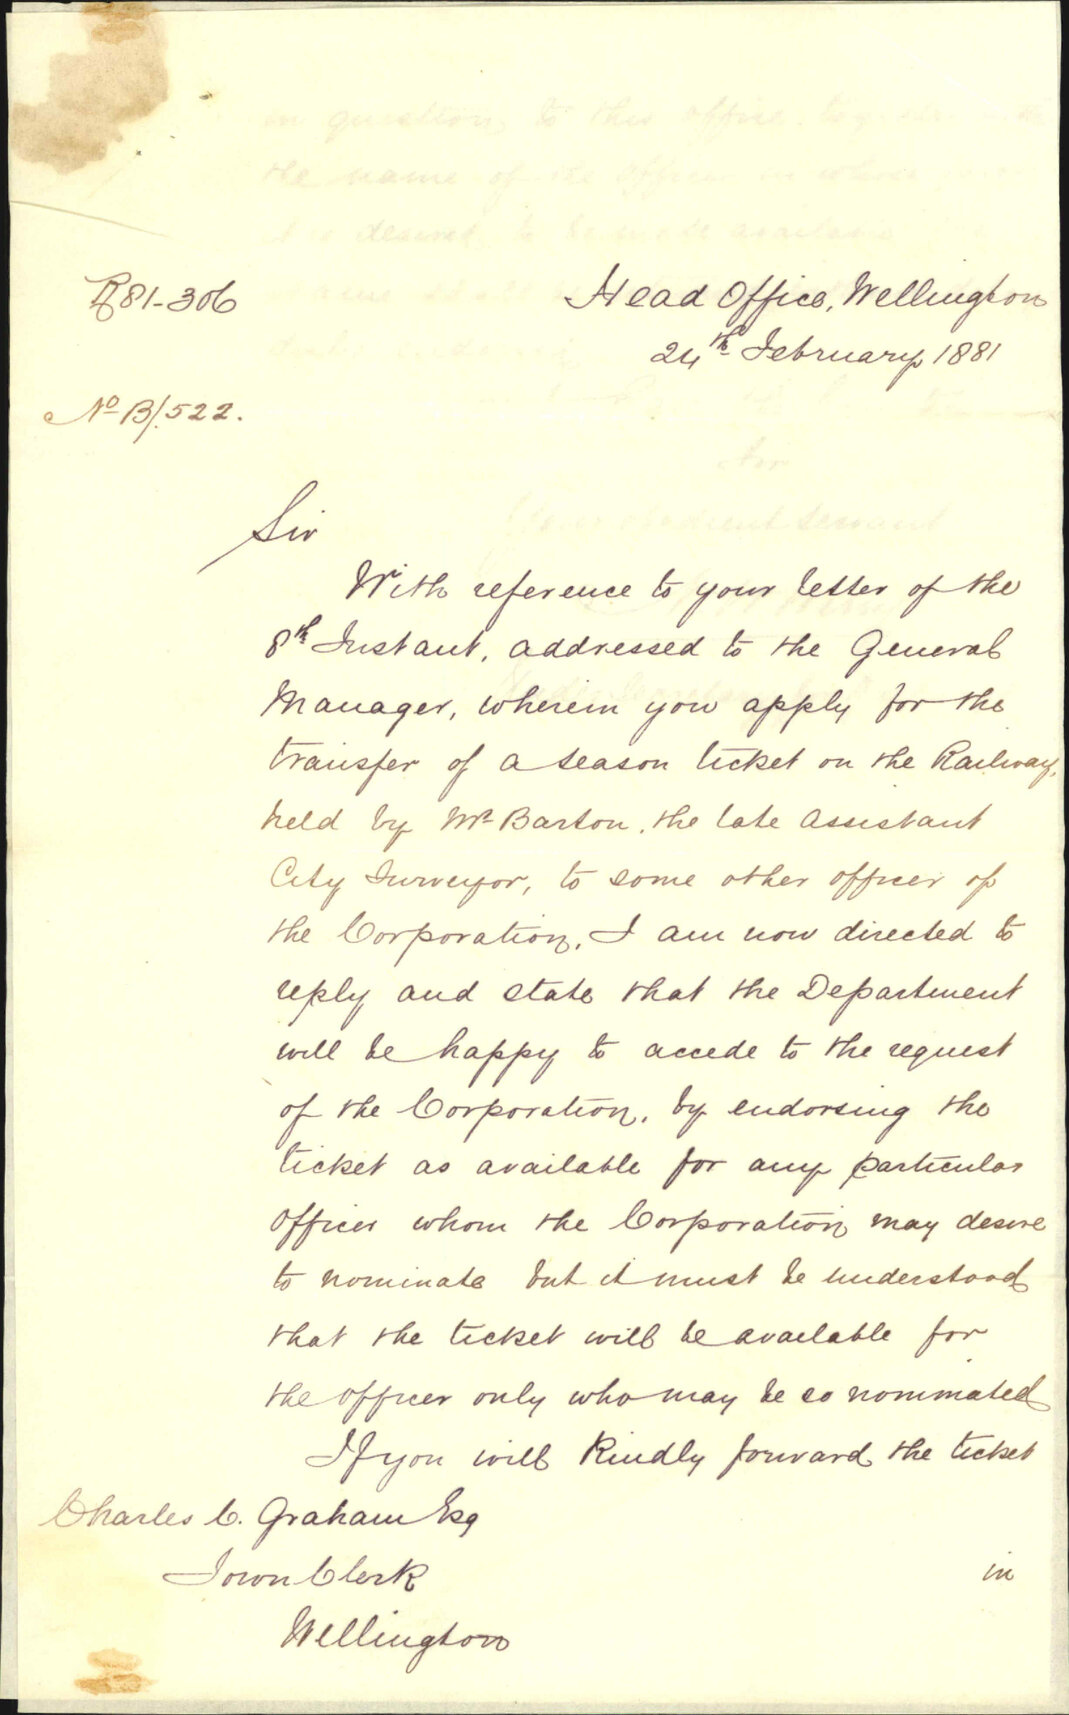 R81-306
Head Office, Wellington
24th February 1881
No B/522.
Sir
With reference to your letter of the
8th Instant, addressed to the General
Manager, wherein you apply for the
transfer of a season ticket on the Railway,
held by Mr Barton, the late Assistant
City Surveyor, to some other officer of
the Corporation, I am now directed to
reply and state that the Department
will be happy to accede to the request
of the Corporation, by endorsing the
ticket as available for any particular
Officer whom the Corporation may desire
to nominate but it must be understood
that the ticket will be available for
the officer only who may be so nominated
If you will Kindly forward the ticket
Charles C. Graham Esq
Town Clerk
in
Wellington